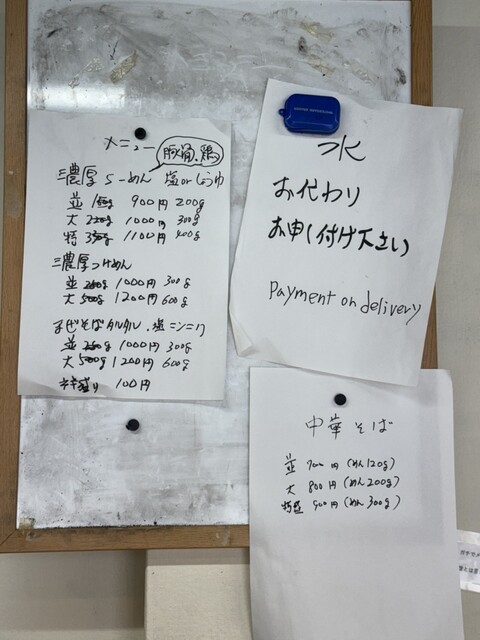 メニュー
豚骨、鶏
濃厚らーめん 塩orしょうゆ
並 900円 200g
大 1000円 300g
特 1100円 400g
濃厚つけめん
並 1000円 300g
大 1200円 600g
まぜそばタルタル、塩ニンニク
並 1000円 300g
大 1200円 600g
100円
水
お代わり
お申し付け下さい
Payment on delivery
中華そば
並 700円(めん120g)
大 800円(めん200g)
特盛 900円(めん300g)